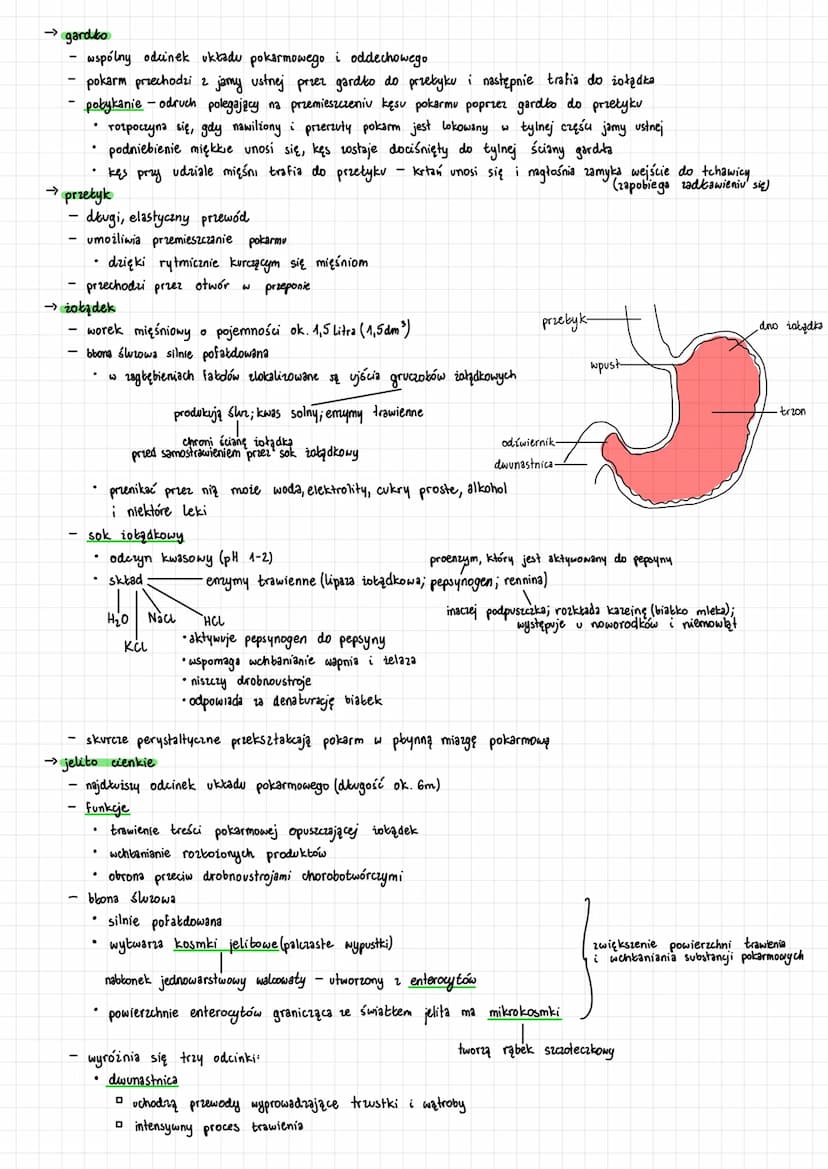 → gardło
– wspólny odcinek układu pokarmowego i oddechowego
– pokarm przechodzi z jamy ustnej przez gardło do przełyku i następnie trafia do żołądka
– połykanie – odruch polegający na przemieszczeniu kęsu pokarmu poprzez gardło do przełyku
• rozpoczyna się, gdy nawilżony i przeżuty pokarm jest lokowany w tylnej części jamy ustnej
• podniebienie miękkie unosi się, kęs zostaje dociśnięty do tylnej ściany gardła
• kęs przy udziale mięśni trafia do przełyku – krtań unosi się i nagłośnia zamyka wejście do tchawicy
(zapobiega zadławieniu się)
→ przełyk
– długi, elastyczny przewód
– umożliwia przemieszczanie pokarmu
• dzięki rytmicznie kurczącym się mięśniom
– przechodzi przez otwór w przeponie
→ żołądek
– worek mięśniowy o pojemności ok. 1,5 litra (1,5 dm³)
– błona śluzowa silnie pofałdowana
• w zagłębieniach fałdów zlokalizowane są ujścia gruczołów żołądkowych
produkują śluz; kwas solny; enzymy trawienne
chroni ścianę żołądka
przed samostrawieniem przez sok żołądkowy
• przenikać przez nią może woda, elektrolity, cukry proste, alkohol
i niektóre leki
przełyk
dno żołądka
wpust
trzon
odźwiernik
dwunastnica
– sok żołądkowy
• odczyn kwasowy (pH 1-2)
proenzym, który jest aktywowany do pepsyny
• skład – enzymy trawienne (lipaza żołądkowa; pepsynogen; rennina)
inaczej podpuszczka; rozkłada kazeinę (białko mleka);
występuje u noworodków i niemowląt
H₂O NaCl HCl
KCl
• aktywuje pepsynogen do pepsyny
• wspomaga wchłanianie wapnia i żelaza
• niszczy drobnoustroje
• odpowiada za denaturację białek
– skurcze perystaltyczne przekształcają pokarm w płynną miazgę pokarmową
→ jelito cienkie
– najdłuższy odcinek układu pokarmowego (długość ok. 6m)
– funkcje
• trawienie treści pokarmowej opuszczającej żołądek
• wchłanianie rozłożonych produktów
• obrona przeciw drobnoustrojami chorobotwórczymi
– błona śluzowa
• silnie pofałdowana
• wytwarza kosmki jelitowe (palczaste wypustki)
zwiększenie powierzchni trawienia
i wchłaniania substancji pokarmowych
nabłonek jednowarstwowy walcowaty – utworzony z enterocytów
• powierzchnie enterocytów granicząca ze światłem jelita ma mikrokosmki
tworzą rąbek szczoteczkowy
– wyróżnia się trzy odcinki:
• dwunastnica
▫ uchodzą przewody wyprowadzające trzustki i wątroby
▫ intensywny proces trawienia